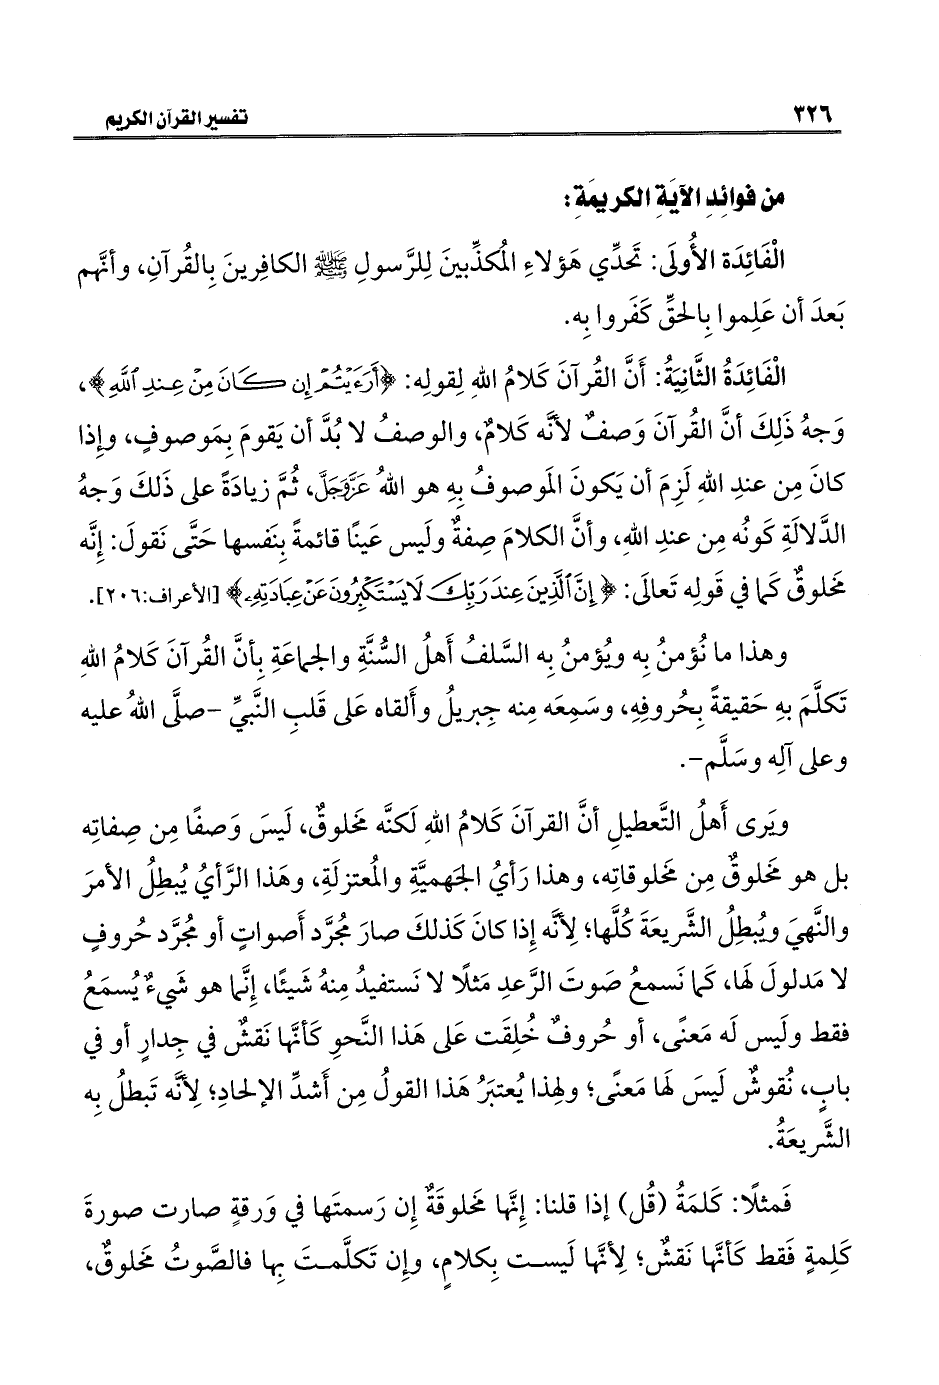 ٣٢٦
تفسير القرآن الكريم
من فوائِدِ الآيَةِ الكريمَةِ:
الْفَائِدَة الأُولَى: تَحدِّي هَؤلاءِ المُكذِّبينَ لِلرَّسولِ ﷺ الكافِرينَ بِالقُرآنِ، وأنَّهم
بَعدَ أن عَلِموا بِالحقِّ كَفَروا بِه.
الْفَائِدَةُ الثَّانِيَةُ: أَنَّ القُرآنَ كَلامُ اللهِ لِقولِه: ﴿أَرَءَيْتُمْ إِن كَانَ مِنْ عِندِ ٱللَّهِ﴾،
وَجهُ ذَلِكَ أنَّ القُرآنَ وَصفٌ لأنَّه كَلامٌ، والوصفُ لا بُدَّ أن يَقومَ بِمَوصوفٍ، وإذا
كانَ مِن عندِ اللهِ لَزِمَ أن يَكونَ المَوصوفُ بِهِ هو اللهُ عَزَّوَجَلَّ، ثُمَّ زيادَةً على ذَلكَ وَجهُ
الدَّلالَةِ كَونُه مِن عندِ اللهِ، وأنَّ الكلامَ صِفةٌ ولَيس عَينًا قائمةً بِنَفسها حَتَّى نَقولَ: إنَّه
مَخلوقٌ كَما في قَولِه تَعالَى: ﴿إِنَّ ٱلَّذِينَ عِندَ رَبِّكَ لَا يَسْتَكْبِرُونَ عَنْ عِبَادَتِهِۦ﴾ [الأعراف:٢٠٦].
وهذا ما نُؤمنُ بِه ويُؤمنُ بِه السَّلفُ أَهلُ السُّنَّةِ والجماعَةِ بِأنَّ القُرآنَ كَلامُ اللهِ
تَكلَّمَ بِهِ حَقيقةً بِحُروفِهِ، وسَمِعَه مِنه جِبريلُ وأَلقاه عَلى قَلبِ النَّبيِّ -صلَّى اللهُ عليه
وعلى آلِه وسَلَّم-.
ويَرى أَهلُ التَّعطيلِ أنَّ القرآنَ كَلامُ اللهِ لَكنَّه مَخلوقٌ، لَيسَ وَصفًا مِن صِفاتِه
بل هو مَخلوقٌ مِن مَخلوقاتِه، وهذا رَأيُ الجَهميَّةِ والمُعتزلَةِ، وهَذا الرَّأيُ يُبطِلُ الأمرَ
والنَّهيَ ويُبطِلُ الشَّريعَةَ كُلَّها؛ لِأنَّه إذا كانَ كَذلكَ صارَ مُجرَّد أَصواتٍ أو مُجرَّد حُروفٍ
لا مَدلولَ لَها، كَما نَسمعُ صَوتَ الرَّعدِ مَثلًا لا نَستفيدُ مِنهُ شَيئًا، إنَّما هو شَيءٌ يُسمَعُ
فقط ولَيس لَه مَعنًى، أو حُروفٌ خُلِقَت عَلى هَذا النَّحوِ كَأنَّها نَقشٌ في جِدارٍ أو في
بابٍ، نُقوشٌ لَيسَ لَها مَعنًى؛ ولِهذا يُعتبَرُ هَذا القولُ مِن أَشدِّ الإلحادِ؛ لِأنَّه تَبطلُ بِه
الشَّريعَةُ.
فَمثلًا: كَلمَةُ (قُل) إذا قلنا: إنَّها مَخلوقَةٌ إن رَسمتَها في وَرقةٍ صارت صورةَ
كَلِمةٍ فَقط كَأنَّها نَقشٌ؛ لِأنَّها لَيست بِكلامٍ، وإن تَكلَّمتَ بِها فالصَّوتُ مَخلوقٌ،